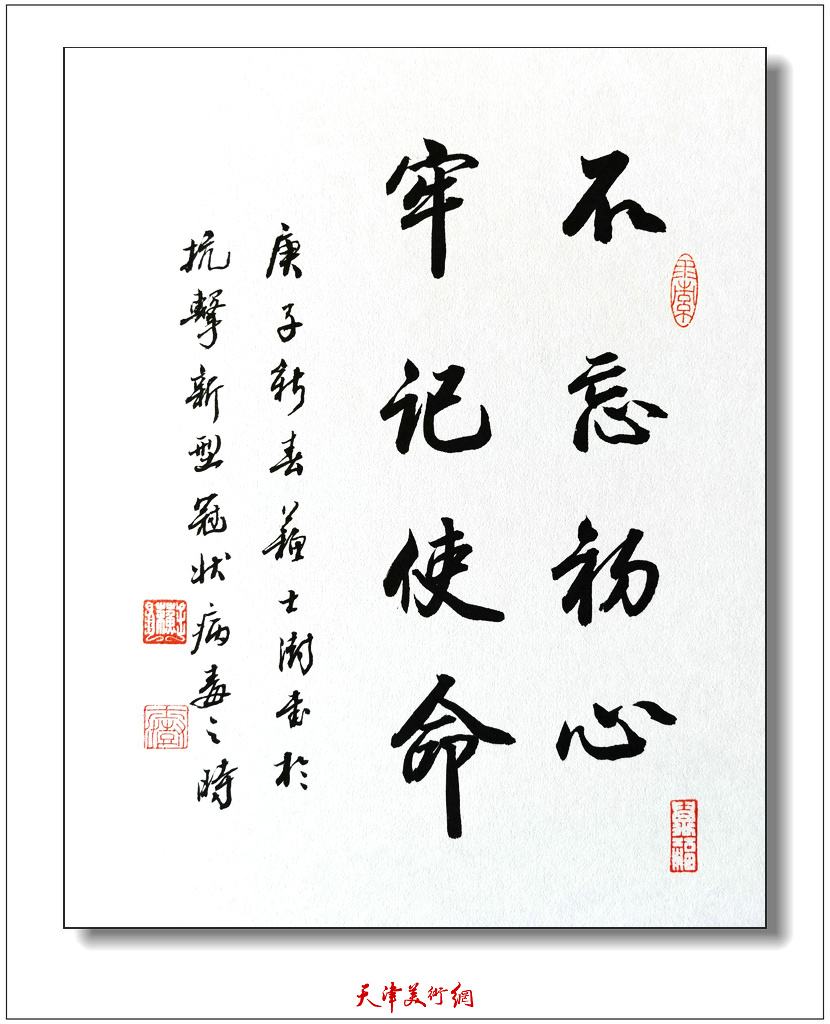 不忘初心
牢记使命
庚子新春蘓士澍書於
抗擊新型冠状病毒之時
天津美術網